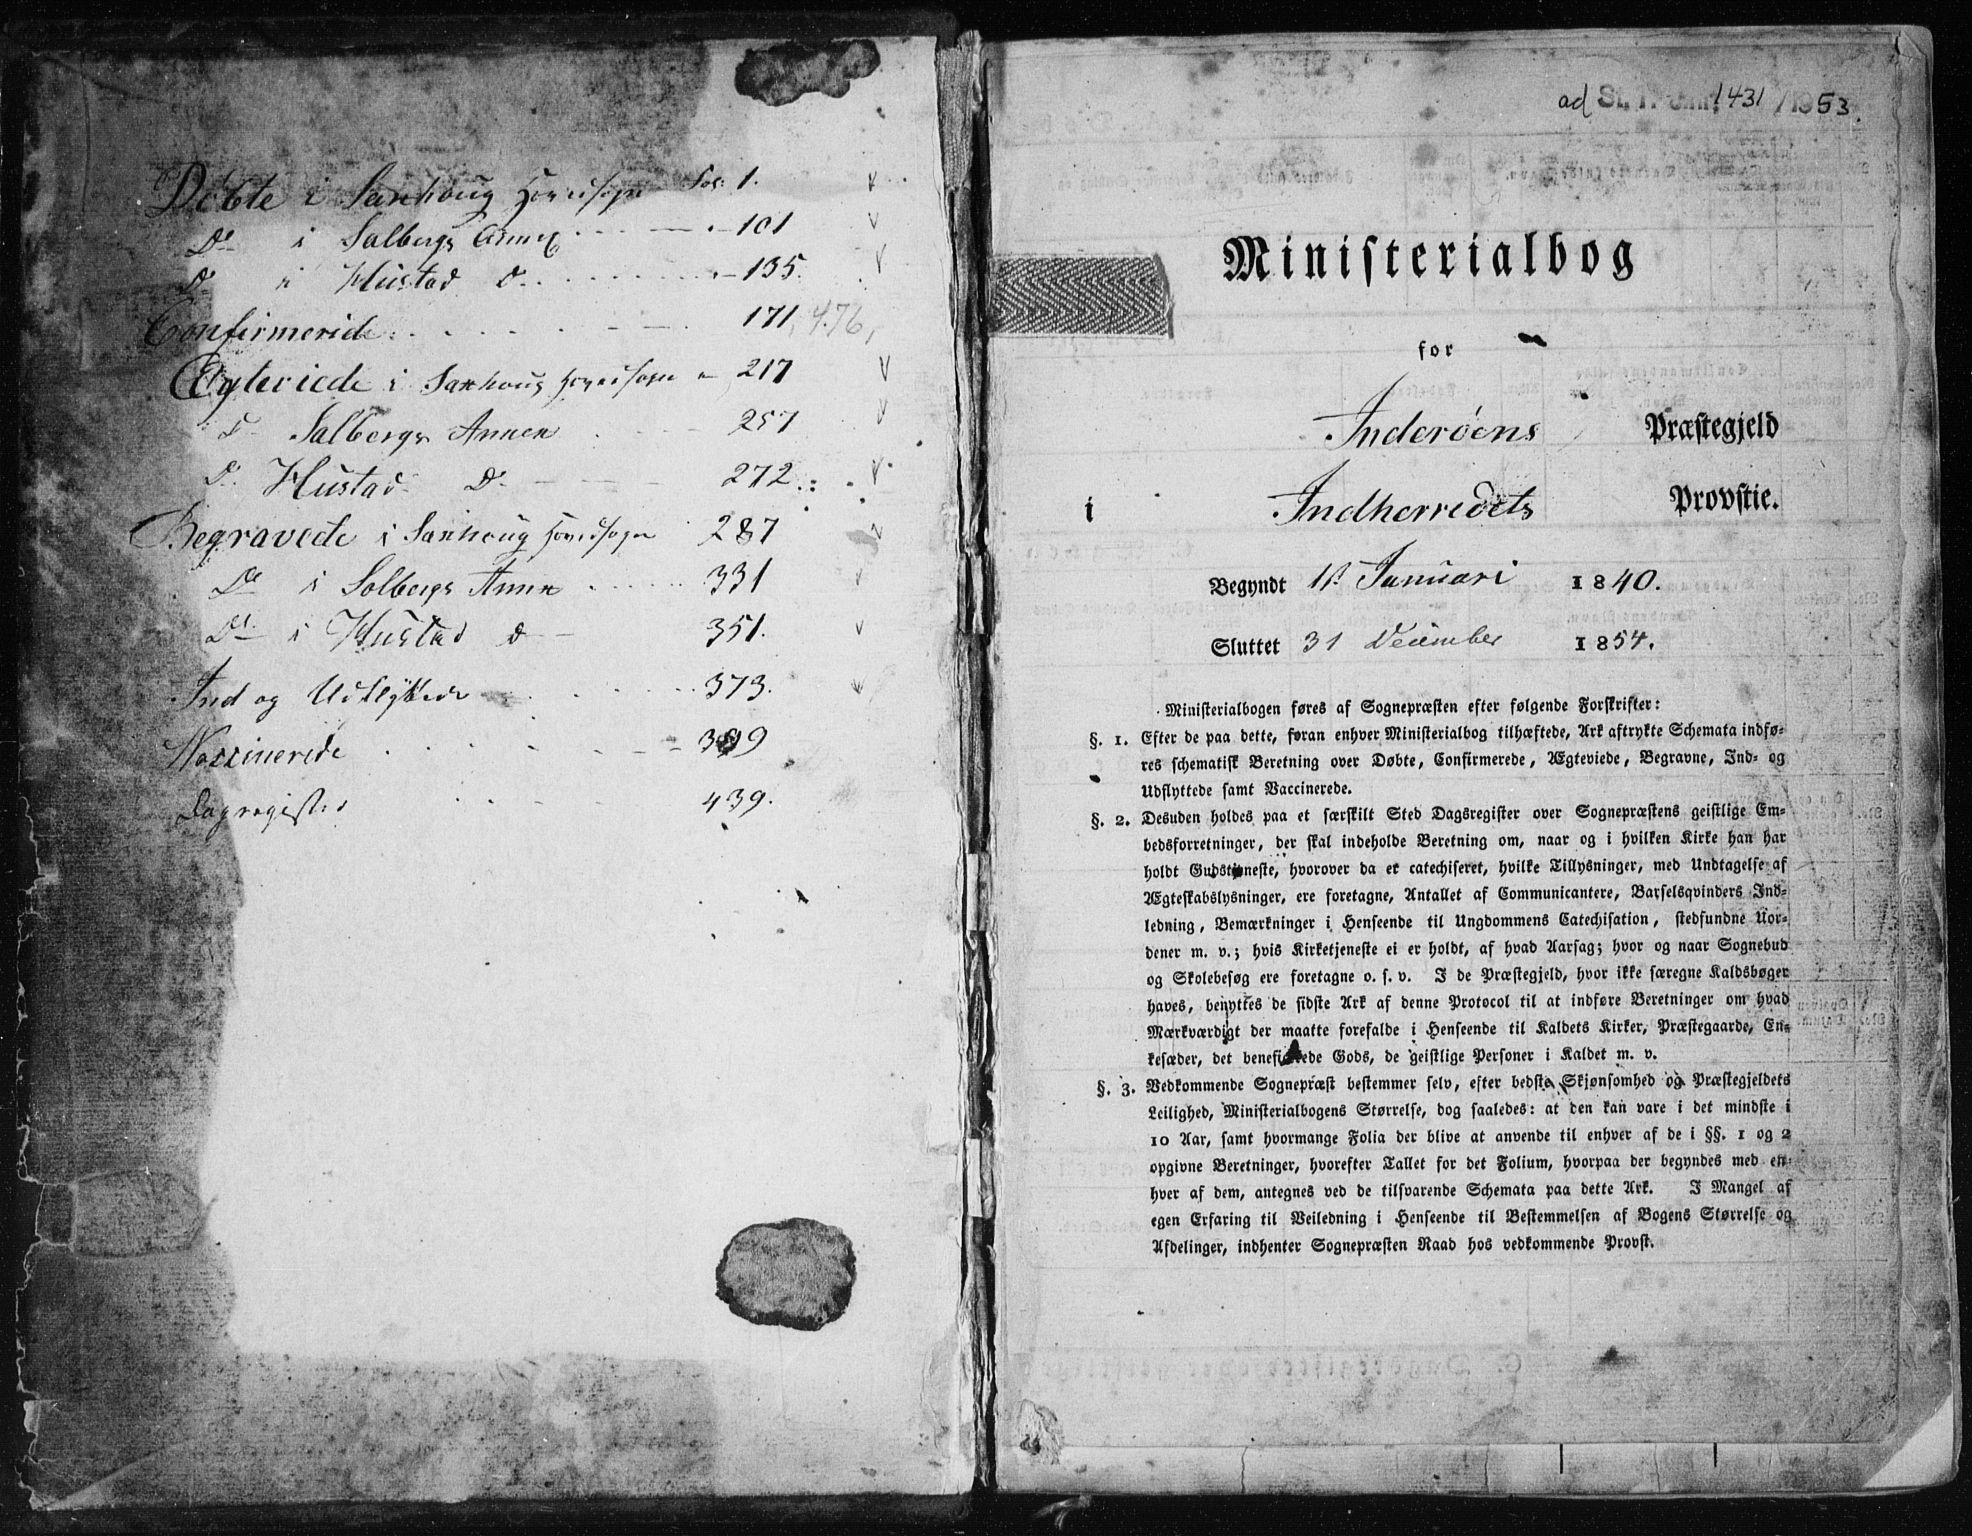 Døbte i Saxhoug Hovedsogn Fol: 1.
Do i Salbergs Annex 101
Do i Hustad Do 135.
Confirmerede 171, 476,
Ægteviede i Saxhoug Hovedsogn 217
Do Salbergs Annex 257
Do Hustad Do 272.
Begravede i Saxhoug Hovedsogn 287
Do i Salbergs Annex 331
Do i Hustad Do 351.
Ind og Udflyttede 373.
Vaccinerede 399
Dagregister 439.
ad 1431/1953.
Ministerialbog
for
Inderøens Præstegjeld
i Indherredets Provstie.
Begyndt 1ste Januari 1840.
Sluttet 31 December 1854.
Ministerialbogen føres af Sognepræsten efter følgende Forskrifter:
§. 1. Efter de paa dette, foran enhver Ministerialbog tilhæftede, Ark aftrykte Schemata indfø-
res schematisk Beretning over Døbte, Confirmerede, Ægteviede, Begravne, Ind- og
Udflyttede samt Vaccinerede.
§. 2. Desuden holdes paa et særskilt Sted Dagsregister over Sognepræstens geistlige Em-
bedsforretninger, der skal indeholde Beretning om, naar og i hvilken Kirke han har
holdt Gudstjeneste, hvorover da er catechiseret, hvilke Tillysninger, med Undtagelse af
Ægteskabslysninger, ere foretagne, Antallet af Communicantere, Barselqvinders Ind-
ledning, Bemærkninger i Henseende til Ungdommens Catechisation, stedfundne Uor-
dener m. v.; hvis Kirketjeneste ei er holdt, af hvad Aarsag; hvor og naar Sognebud
og Skolebesøg ere foretagne o. s. v. I de Præstegjeld, hvor ikke særegne Kaldsbøger
haves, benyttes de sidste Ark af denne Protocol til at indføre Beretninger om hvad
Mærkværdigt der maatte forefalde i Henseende til Kaldets Kirker, Præstegaarde, En-
kesæder, det beneficerede Gods, de geistlige Personer i Kaldet m. v.
§. 3. Vedkommende Sognepræst bestemmer selv, efter bedste Skjønsomhed og Præstegjeldets
Leilighed, Ministerialbogens Størrelse, dog saaledes: at den kan vare i det mindste i
10 Aar, samt hvormange Folia der blive at anvende til enhver af de i §§. 1 og 2
opgivne Beretninger, hvorefter Tallet for det Folium, hvorpaa der begyndes med en-
hver af dem, antegnes ved de tilsvarende Schemata paa dette Ark. I Mangel af
egen Erfaring til Veiledning i Henseende til Bestemmelsen af Bogens Størrelse og
Afdelinger, indhenter Sognepræsten Raad hos vedkommende Provst.